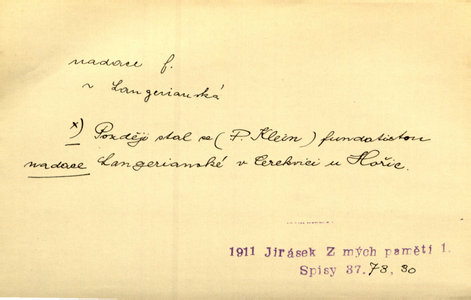 nadace f.
v Langerianská
x) Později stal se (P. Klein) fundatistou
nadace Langerianské v Cerekvici u Hořic.
1911 Jirásek Z mých pamětí 1.
Spisy 37.78, 30